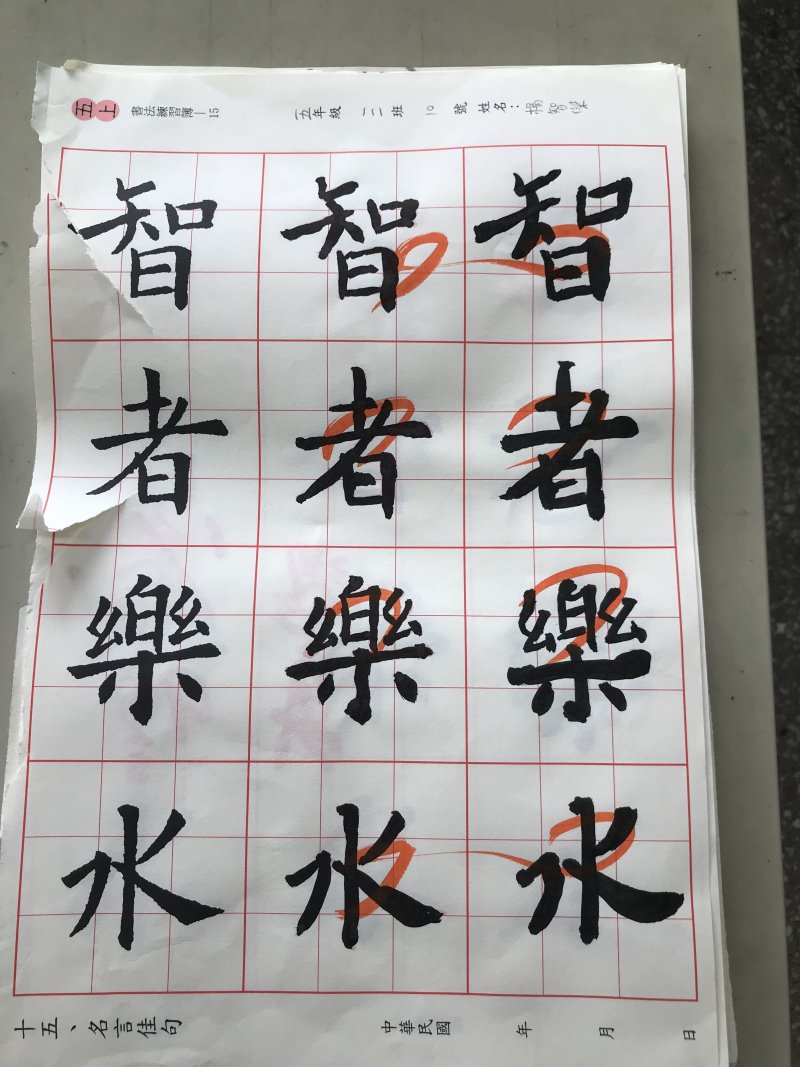 五上
書法練習簿—15
五年級 二班 10 號 姓名：楊智傑
智 智 智
者 者 者
樂 樂 樂
水 水 水
十五、名言佳句
中華民國 年 月 日